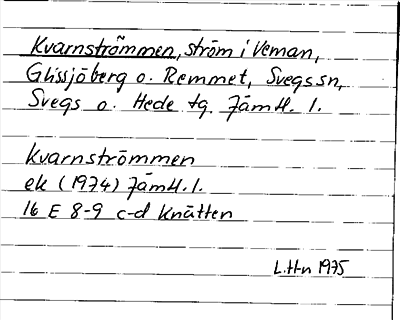 Kvarnströmmen, ström i Veman,
Glissjöberg o. Remmet, Svegs sn,
Svegs o. Hede tg. Jämtl. l.
Kvarnströmmen
ek (1974) Jämtl. l.
16 E 8-9 c-d Knätten
L. Hn 1975